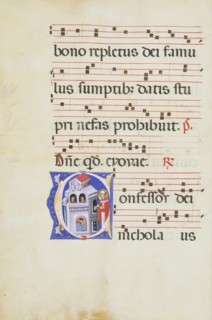 bono repletus dei famu
lus sumptibȝ datis stu
pri nefas prohibuit. p̃.
Dñe qď. euouae. ℟
onfessor dei
nichola us